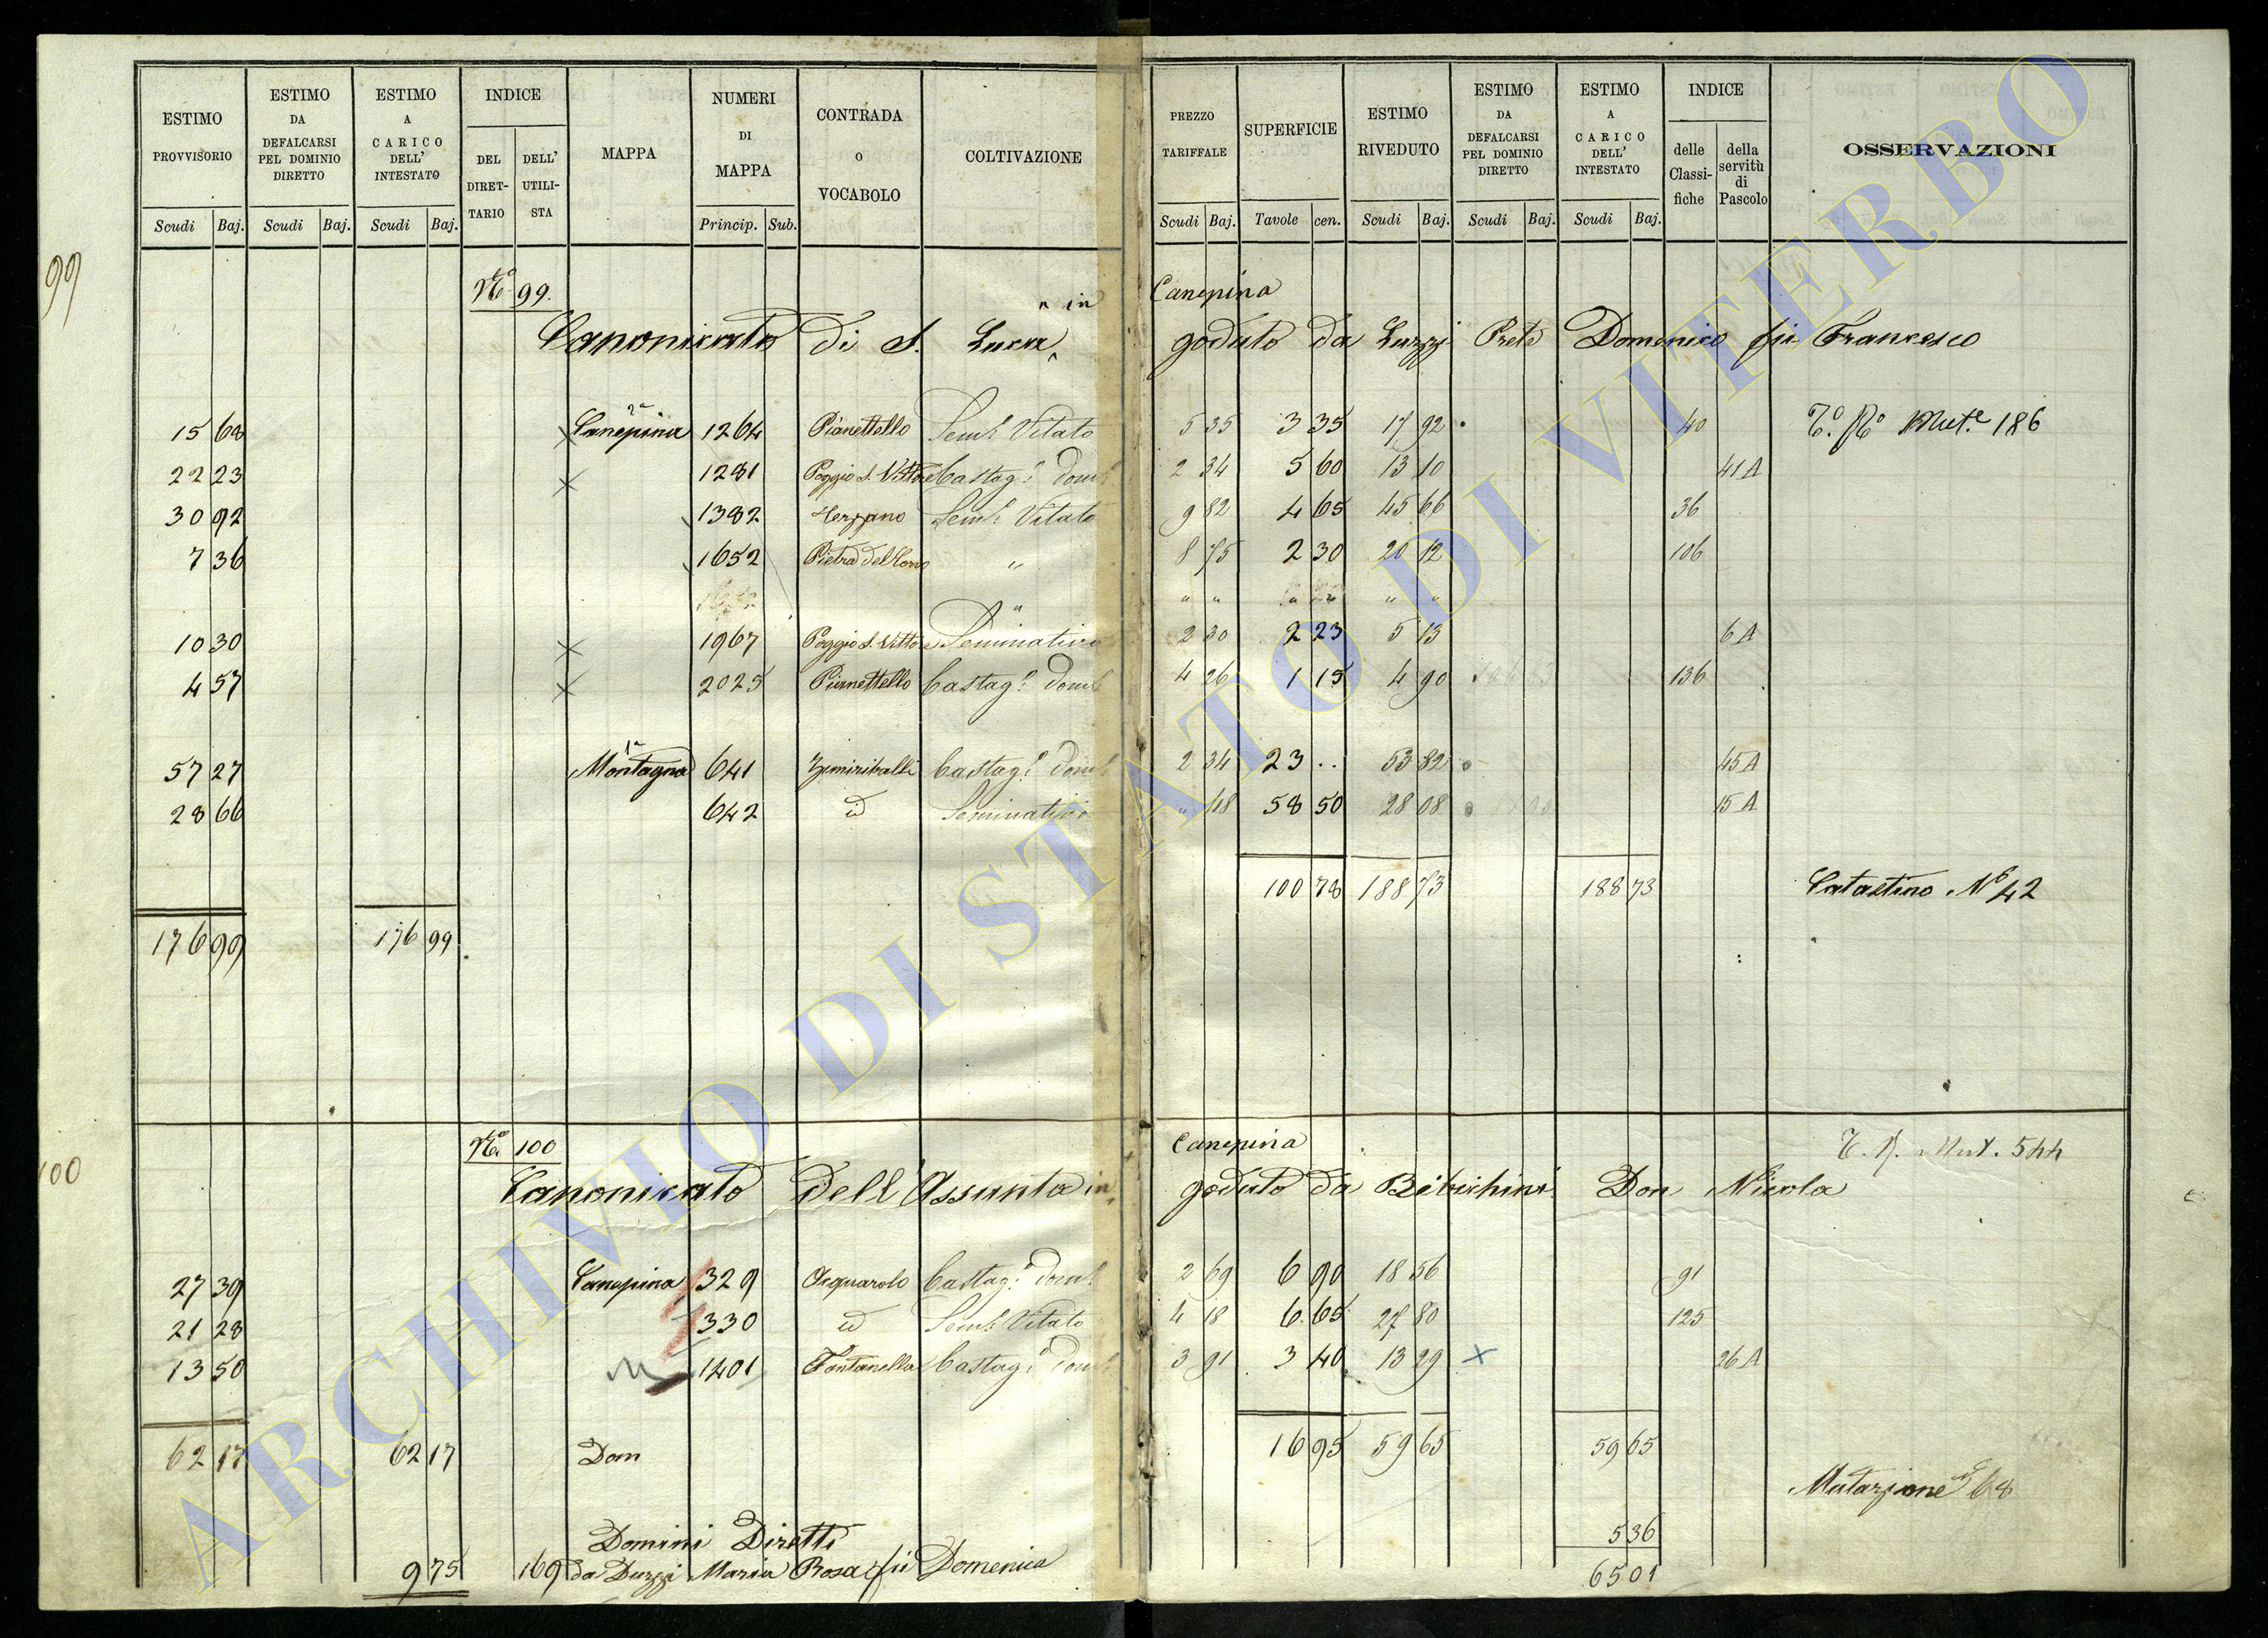 ESTIMO PROVVISORIO Scudi Baj. ESTIMO DA DEFALCARSI PEL DOMINIO DIRETTO Scudi Baj. ESTIMO A CARICO DELL' INTESTATO Scudi Baj. INDICE DEL DIRET-TARIO DELL' UTILI-STA MAPPA NUMERI DI MAPPA Princip. Sub. CONTRADA O VOCABOLO COLTIVAZIONE PREZZO TARIFFALE Scudi Baj. SUPERFICIE Tavole cen. ESTIMO RIVEDUTO Scudi Baj. ESTIMO DA DEFALCARSI PEL DOMINIO DIRETTO Scudi Baj. ESTIMO A CARICO DELL' INTESTATO Scudi Baj. INDICE delle Classi-fiche della servitù di Pascolo OSSERVAZIONI
99
No 99. in Canepina
Canonicato di S. Lucia goduto da Luzzi Prete Domenico fu Francesco
15 68 Canepina 2a 1264 Pianettello Semo Vitato 5 35 3 35 17 92 40 186
22 23 1281 Poggio S. Vittore Castago dome 2 34 5 60 13 10 41 A
30 92 1382 Semo Vitato 9 82 4 65 45 66 36
7 36 1652 " 8 75 2 30 20 12 106
" " " " "
10 30 1967 Poggio S. Vittore Seminativo 2 30 2 23 5 13 6 A
4 57 2025 Pianettello Castago dome 4 26 1 15 4 90 136
57 27 Montagna 1a 641 Castago dome 2 34 23 .. 53 82 45 A
28 66 642 id Seminativo " 48 58 50 28 08 15 A
100 78 188 73 188 73 Catastino No 42
176 99 176 99
100
No 100 Canepina T. R. Mut. 544
Canonicato dell'Assunta in goduto da Bibichini Don Nicola
27 39 Canepina 329 Acquarolo Castago dome 2 69 6 90 18 56 91
21 28 330 id Semo Vitato 4 18 6.65 27 80 125
13 50 1401 Fontanella Castago dome 3 91 3 40 13 29 X 26 A
62 17 62 17 Dom 16 95 59 65 59 65
Mutazione 68
Domini Diretti 5 36
9 75 169 da Luzzi Maria Rosa fu Domenico 65 01
ARCHIVIO DI STATO DI VITERBO